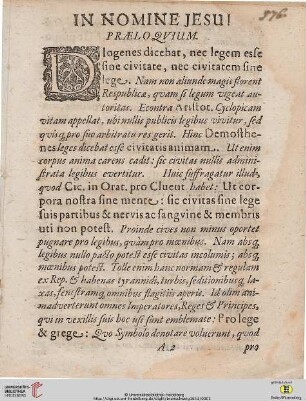 IN NOMINE JESU!
PRÆLOQVIUM.
DIogenes dicebat, nec legem esse
sine civitate, nec civitatem sine
lege. Nam non aliunde magis florent
Respublicæ, qvam si legum vigeat au-
toritas. Econtra Aristot. Cyclopicam
vitam appellat, ubi nullis publicis legibus vivitur, sed
qvisq; pro suo arbitratu res gerit. Hinc Demosthe-
nes leges dicebat esse civitatis animam. Ut enim
corpus anima carens cadit: sic civitas nullis admini-
strata legibus evertitur. Huic suffragatur illud,
qvod Cic. in Orat. pro Cluent. habet: Ut cor-
pora nostra sine mente: sic civitas sine lege
suis partibus & nervis ac sangvine & membris
uti non potest. Proinde cives non minus oportet
pugnare pro legibus, qvàm pro mœnibus. Nam absq;
legibus nullo pacto potest esse civitas incolumis; absq;
mœnibus potest. Tolle enim hanc normam & regulam
ex Rep. & habenas tyrannidi, turbis, seditionibusq; la-
xas, fenestramq; omnibus flagitiis aperis. Id olim ani-
madverterunt omnes Imperatores, Reges & Principes,
qvi in vexillis suis hoc usi sunt emblemate: Pro lege
& grege: Qvo Symbolo denotare voluerunt, qvod
A 2
pro